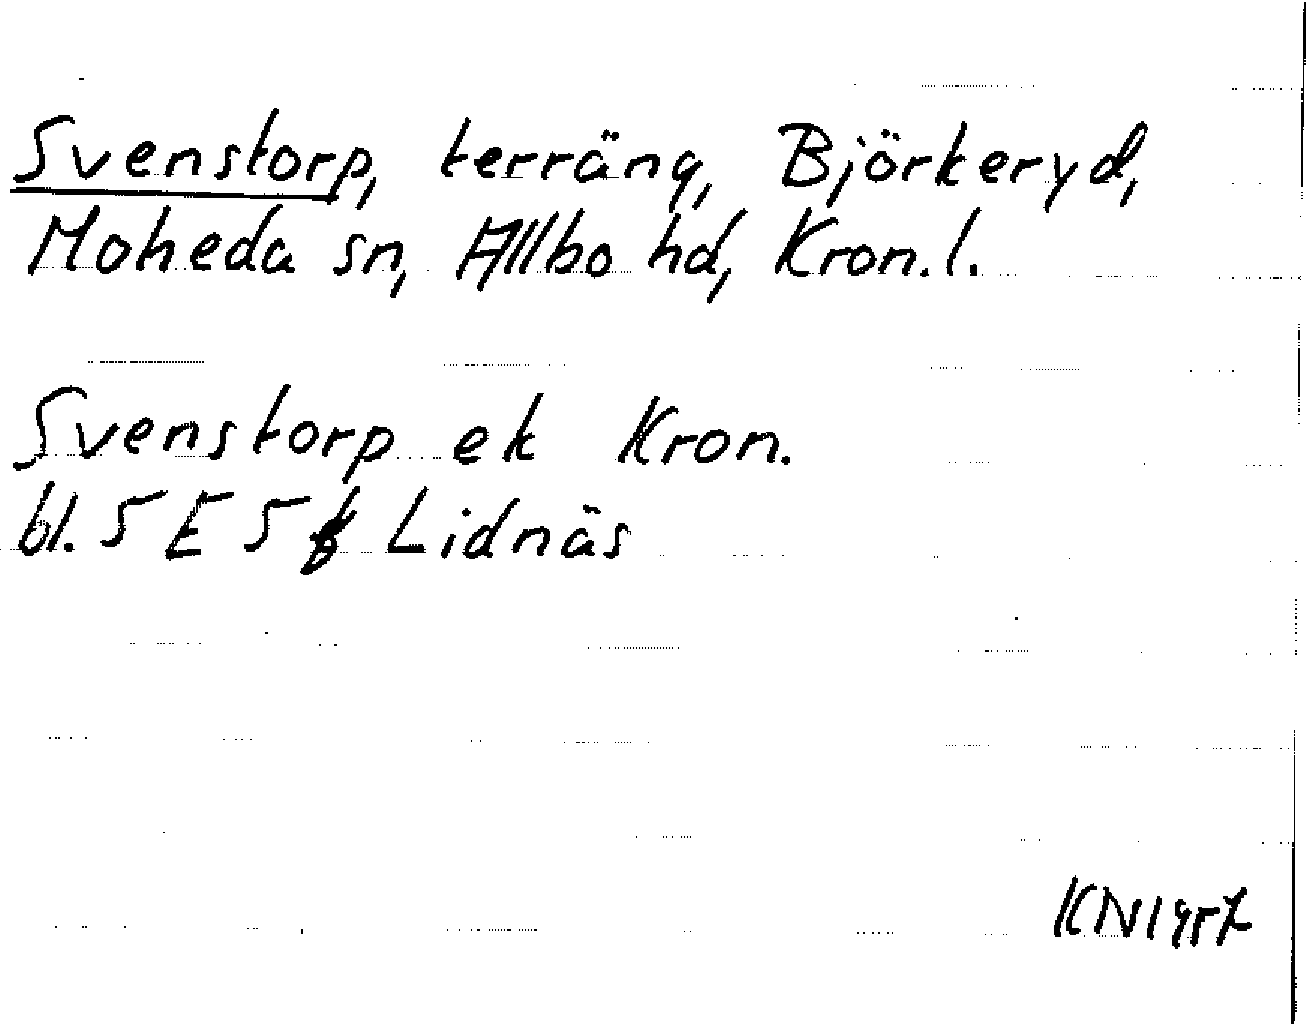 Svenstorp, terräng, Björkeryd,
Moheda sn, Allbo hd, Kron.l.
Svenstorp ek Kron.
bl. 5 E 5 f Lidnäs
KN 1957